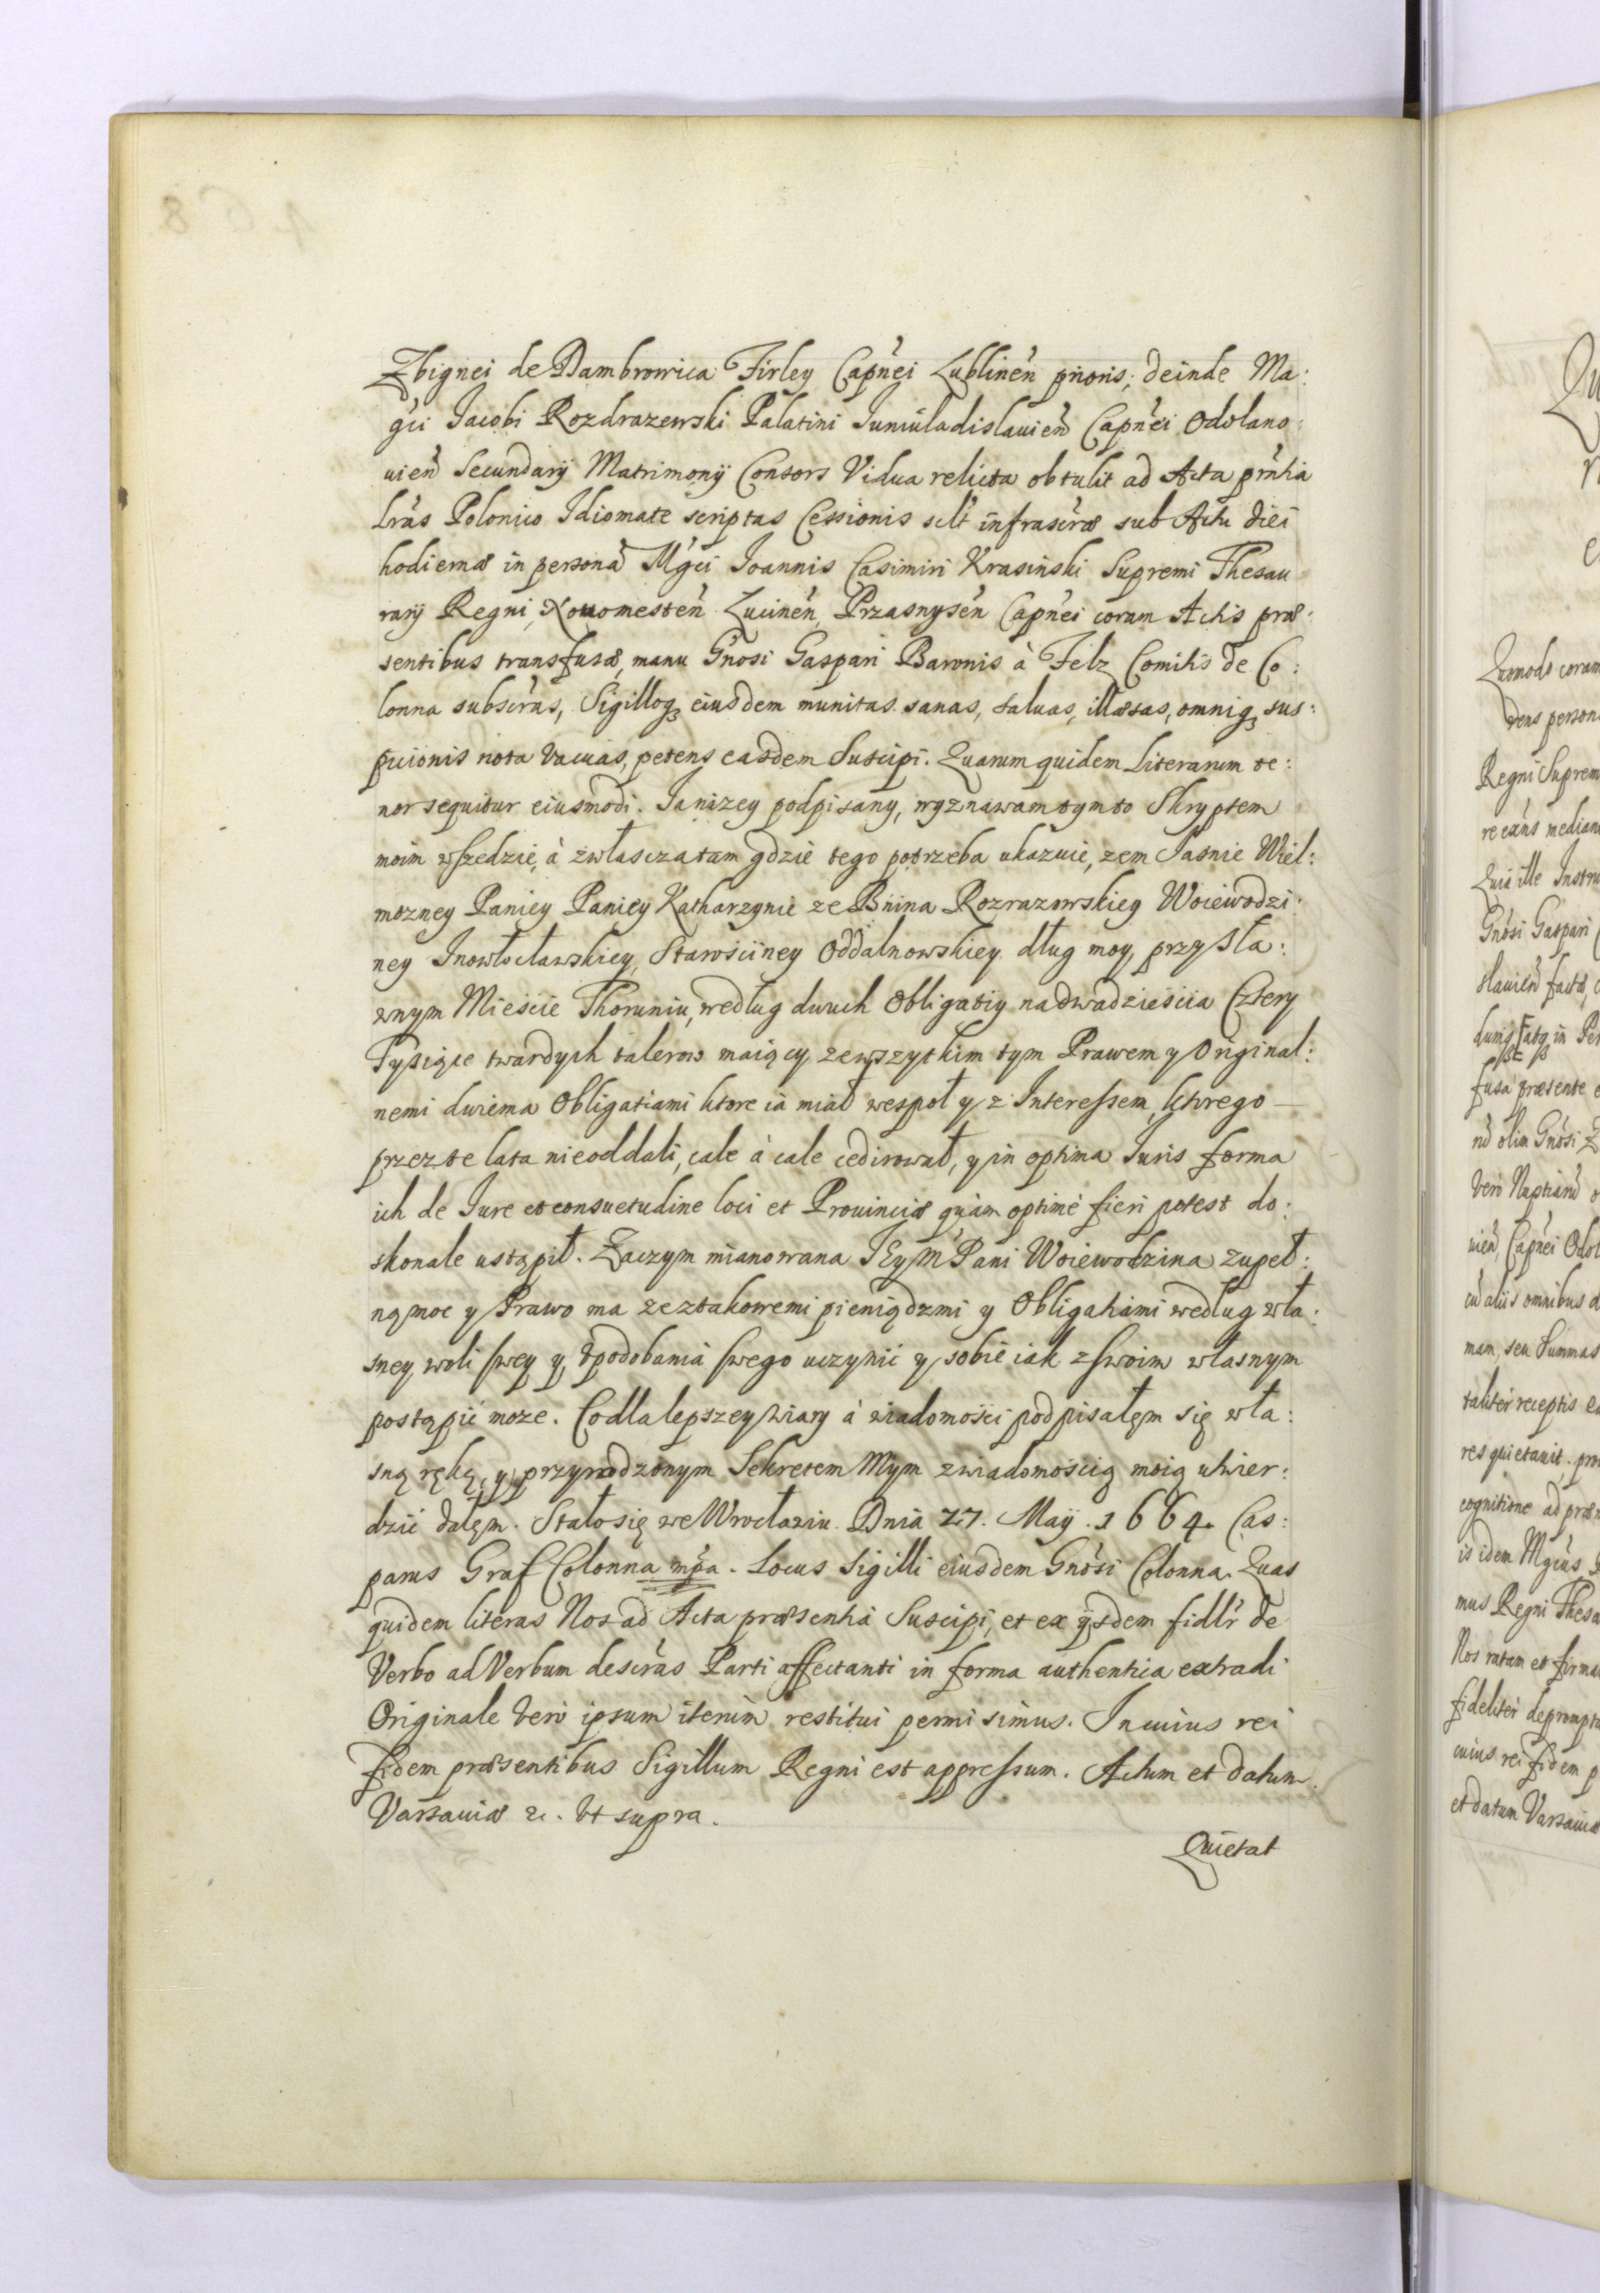 Zbignei de Dambrowica Firley Capnei Lublinen prioris; deinde Ma:
gci Jacobi Rozdrazewski Palatini Juniuladislauien Capnei Odolano:
uien Secundarÿ Matrimonÿ Consors Vidua relicta obtulit ad Acta pnhia
Lras Polonico Idiomate scriptas Cessionis silt infrascræ sub Actu diei
hodiernæ in persona Mgci Joannis Casimiri Krasinski Supremi Thesau
rarÿ Regni, Nouomesten Lucinen, Przasnysen Capnei coram Actis præ:
sentibus transfusæ, manu Gnosi Gaspari Baronis à Felz Comitis de Co:
lonna subscras, Sigilloq eiusdem munitas sanas, saluas, illæsas, omniq sus:
picionis nota vacuas, petens easdem Suscipi. Quarum quidem Literarum te:
nor sequitur eiusmodi. Ja nizey podpisany, wyznawam tym to Skryptem
moim wszedzie, à zwłascza tam gdzie tego potrzeba ukazuie, zem Jasnie Wiel:
mozney Paniey Paniey Katharzynie ze Bnina Rozrazowskiey Woiewodzi:
ney Inowłocławskiey, Starościney Oddalnowskiey dług moy, przy Sła:
wnym Mieście Thoruniu, według dwuch Obligatiy na dwadzieścia Cztery
Tysiące twardych talerow maiący, ze wszytkim tym Prawem y Original:
nemi dwiema Obligatiami ktore ia miał wespoł y z Interessem, ktorego
przez te lata nie oddali, cale à cale cedirował, y in optima Juris forma
ich de Jure et consuetudine loci et Prouinciæ quam optimè fieri potest do:
skonale ustąpił. Zaczym mianowana JEyM Pani Woiewodzina zupeł:
ną moc y Prawo ma ze stakowemi pieniądzmi y Obligatiami według wła:
sney woli swey y upodobania swego uczynić y sobie iak z swoim własnym
postąpić moze. Co dla lepszey wiary à wiadomości podpisałem się wła:
sną ręką, y przyrodzonym Sekretem Mym z wiadomością moią utwier:
dzić dałęm. Stało się we Wrocławiu Dnia 27. Maÿ. 1664. Cas:
parus Graf Colonna mpa. Locus Sigilli eiusdem Gnosi Colonna. Quas
quidem literas Nos ad Acta præsentia Suscipi, et ex ÿsdem fidlr de
Verbo ad Verbum descras Parti affectanti in forma authentica extradi
Originale vero ipsum iterum restitui permisimus. In cuius rei
fidem præsentibus Sigillum Regni est appressum. Actum et datum
Varsauiæ &c. Vt supra.
Quietat